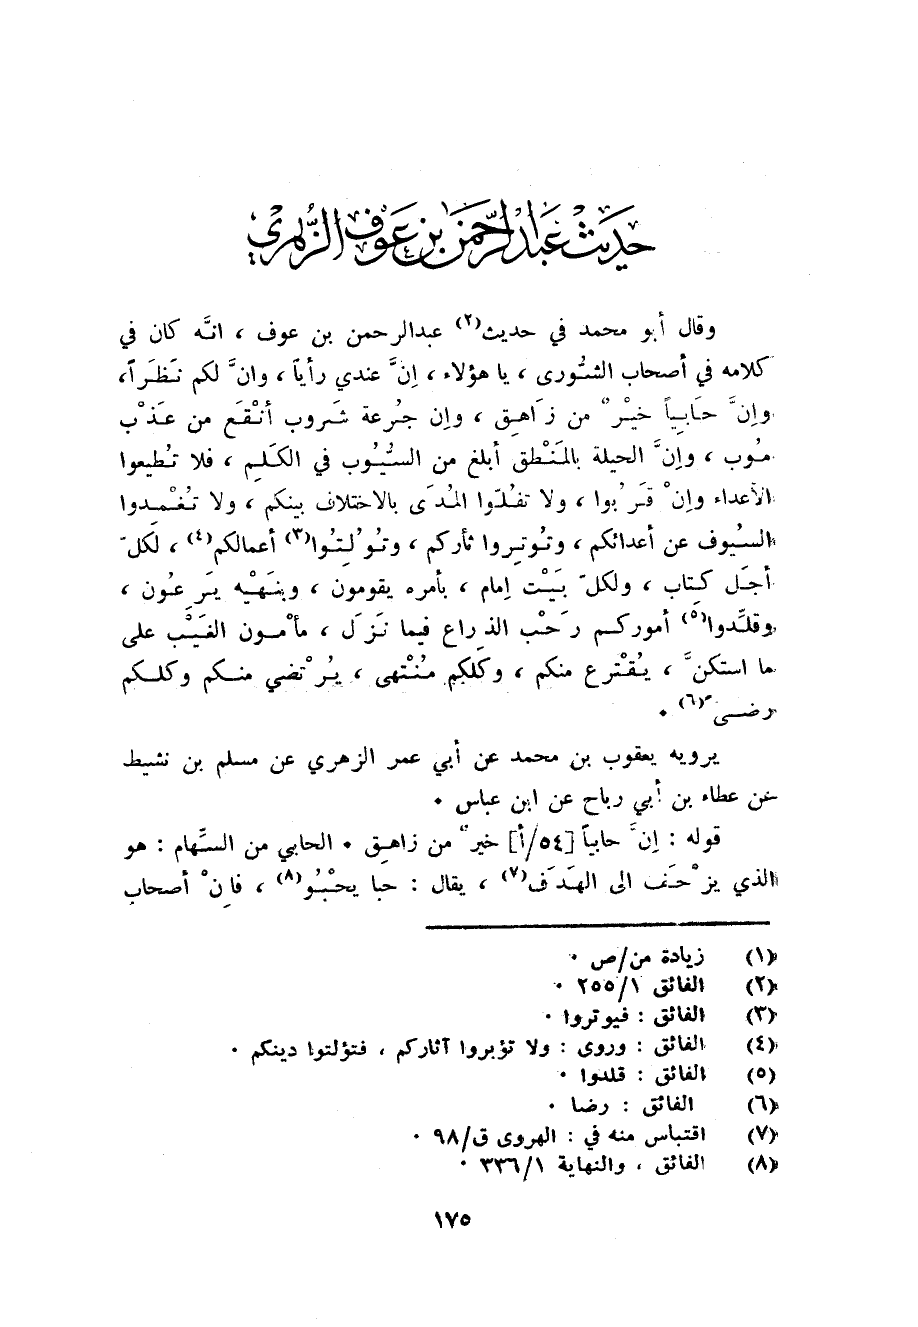 حديث عبدالرحمن بن عوف الزهري
وقال أبو محمد في حديث(٢) عبدالرحمن بن عوف ، انَّه كان في
كلامه في أصحاب الشُّورى ، يا هؤلاء ، إنَّ عندي رأياً ، وانَّ لكم نَظَراً،
وإنَّ حَابِياً خيْرٌ من زَاهِق ، وإن جُرعة شَروب أنْقَع من عَذْب
مُوب ، وإنَّ الحيلة بالمَنْطق أبلغ من السُّيُوب في الكَلِم ، فلا تُطيعوا
الأعداء وإنْ قَرُبوا ، ولا تفلّوا المُدَى بالاختلاف بينكم ، ولا تُغْمِدوا
السيُوف عن أعدائكم ، وتُوتِروا ثأركم ، وتُولِتُوا(٣) أعمالكم(٤) ، لكلّ
أجَل كِتاب ، ولكلّ بَيْت إمام ، بأمره يقومون ، وبنَهْيِه يَرِعُون ،
وقلِّدوا(٥) أموركم رَحْب الذراع فيما نَزَل ، مأمون الغَيْب على
ما استكنَّ ، يُقْترع منكم ، وكلكم مُنْتهى ، يُرْتضي منكم وكلكم
رضىً(٦) .
يرويه يعقوب بن محمد عن أبي عمر الزهري عن مسلم بن نشيط
عن عطاء بن أبي رباح عن ابن عباس .
قوله : إنَّ حابياً [٥٤/أ] خيرٌ من زاهِق . الحابي من السِّهام : هو
الذي يزْحَف الى الهَدَف(٧) ، يقال : حبا يحْبُو(٨) ، فإنْ أصحاب
(١) زيادة من/ص .
(٢) الفائق ٢٥٥/١ .
(٣) الفائق : فيوتروا .
(٤) الفائق : وروى : ولا تؤبروا آثاركم ، فتؤلتوا دينكم .
(٥) الفائق : قلدوا .
(٦) الفائق : رضا .
(٧) اقتباس منه في : الهروى ق/٩٨ .
(٨) الفائق ، والنهاية ٣٣٦/١ .
١٧٥